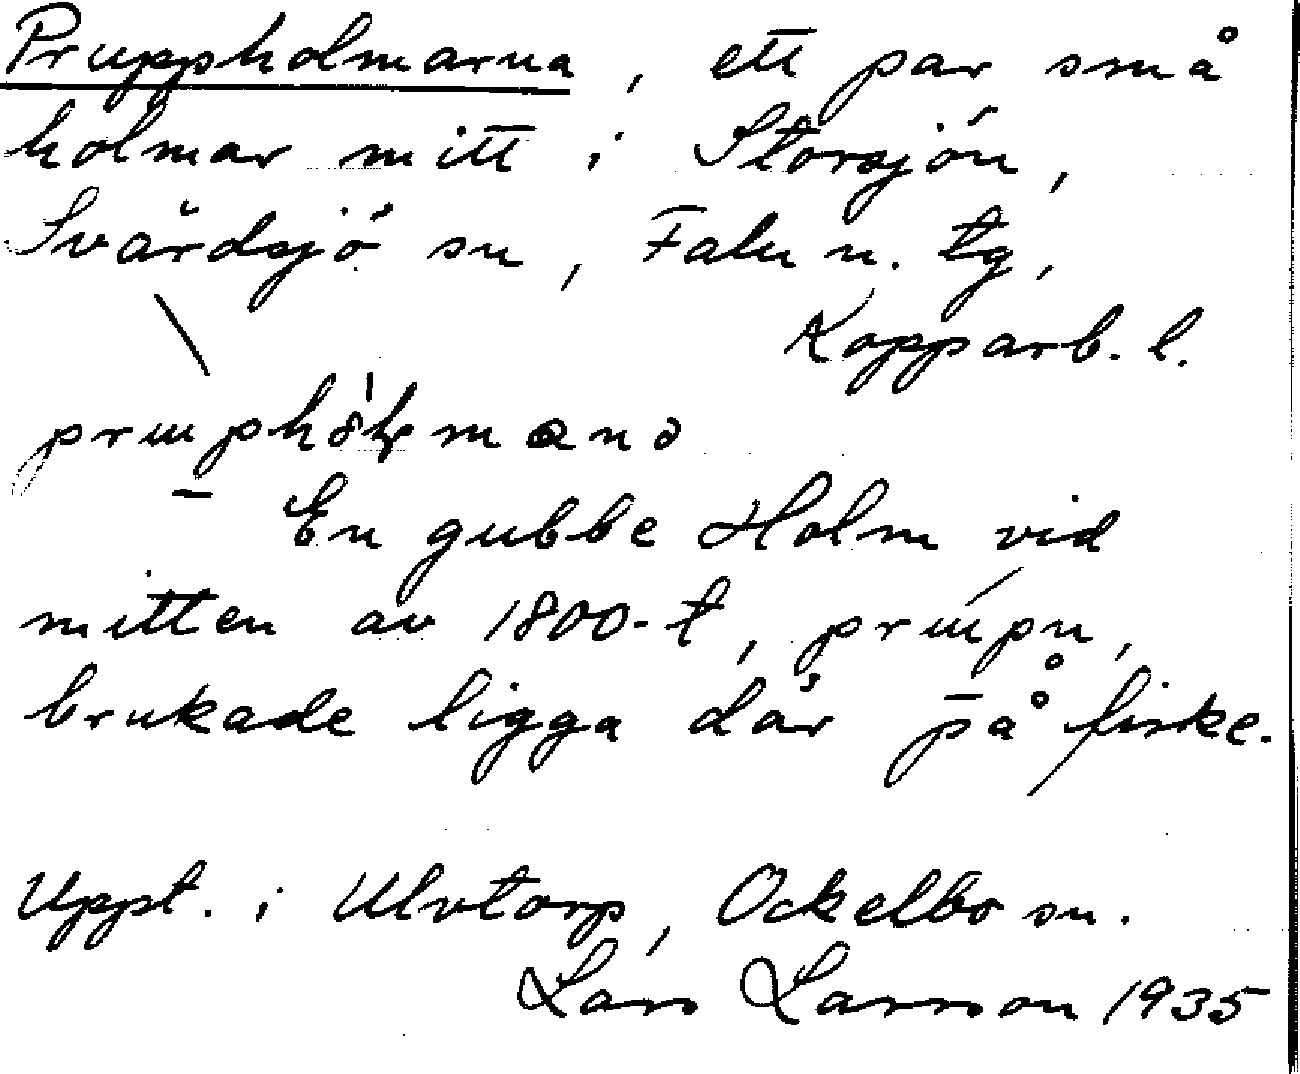 Pruppholmarna, ett par små
holmar mitt i Storsjön,
Svärdsjö sn, Falu n. tg,
Kopparb. l.
En gubbe Holm vid
mitten av 1800-t,
brukade ligga där på fiske.
Uppt. i Ulvtorp, Ockelbo sn.
Lars Larsson 1935